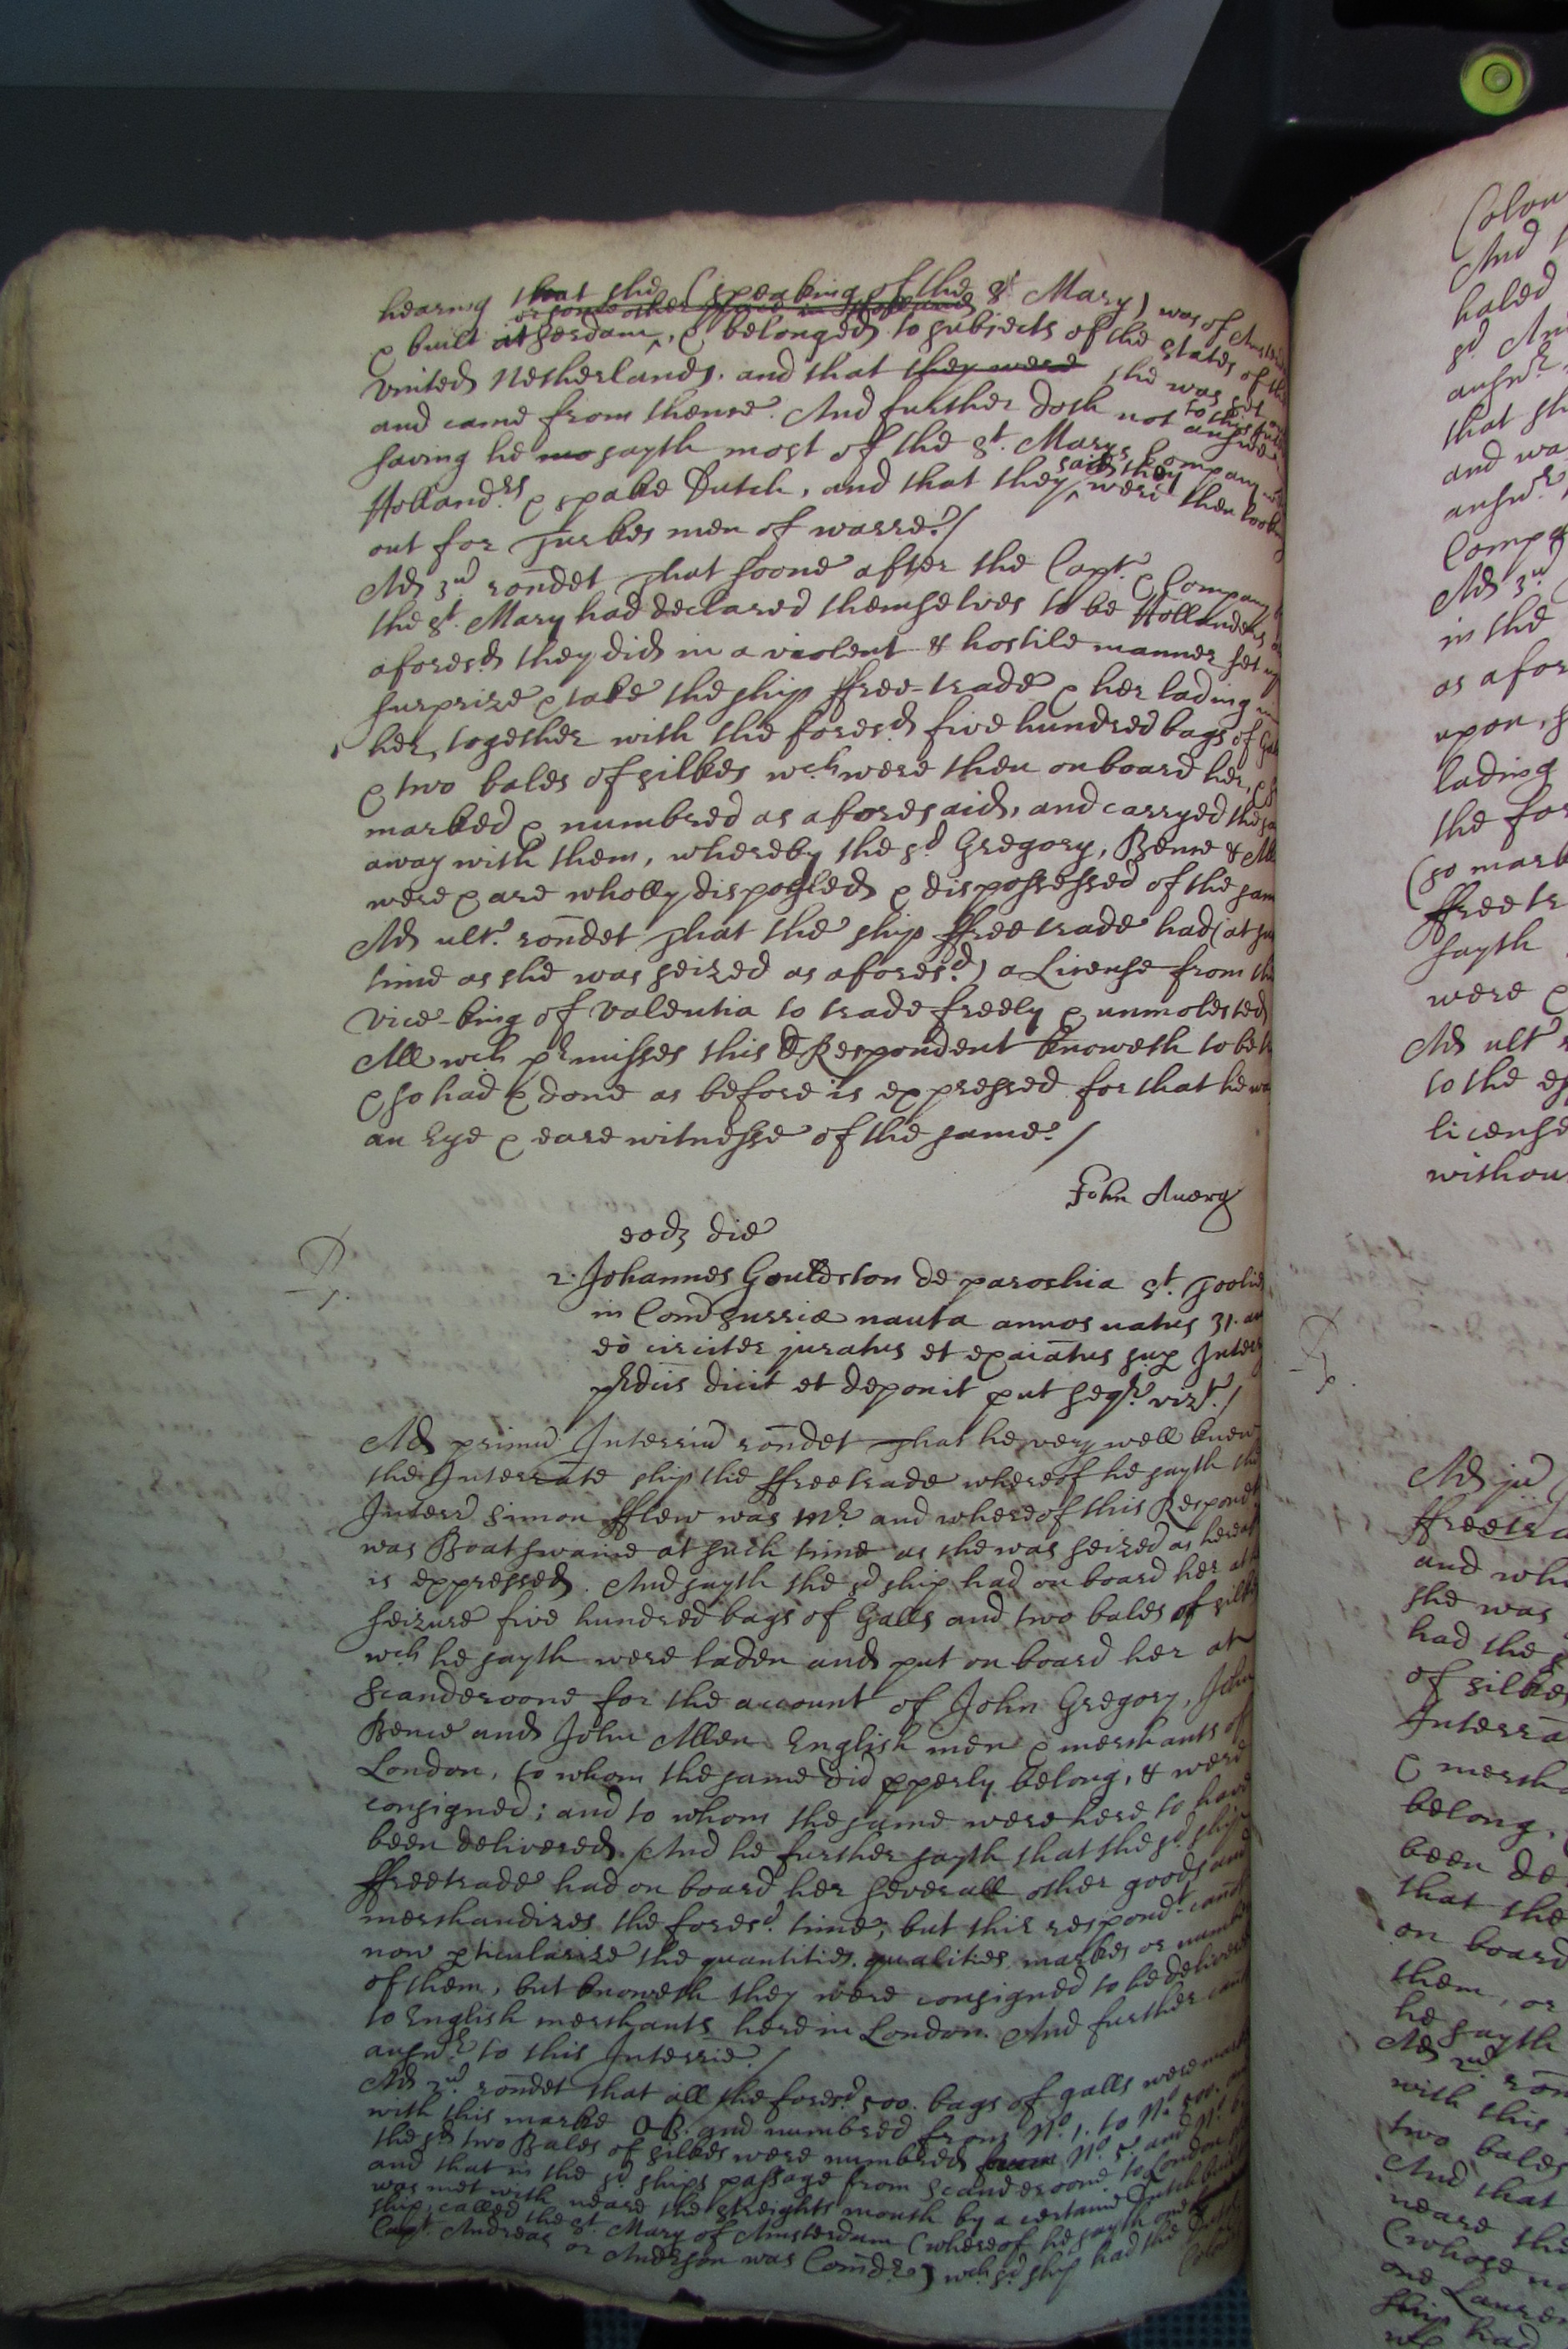 hearing that she (speaking of the St Mary) was of
or some other place in Holland
& built at Amsterdam, & belonged to subjects of the States of the
United Netherlands. and that they were she was set
and came from thence. And further doth not answer
to this
saving he sayth most of the St. Marys Company
Holland.rs & spake Dutch, and that they said they were then looking
out for Turkes men of warre./
Ad 3ud rondet That soone after the Capt. & Company
the St. Mary had declared themselves to be Hollanders
aforesd. they did in a violent & hostile manner set
surprize & take the ship ffree-trade & her lading
her, together with the foresd. five hundred bags of
& two bales of silkes wch were then on board her,
marked & numbred as aforesaid, and carryed the
away with them, whereby the sd Gregory, Bence &
were & are wholly dispoyled & dispossessed of the
Ad ult. rondet That the ship ffree trade had (at
time as she was seized as aforesd.) a License from the
Vice-king of Valentia to trade freely & unmolested
All wch prmisses this Respondent knoweth to be
& so had & done as before is expressed for that he
an Eye & eare witnesse of the same./
John Avery
eodz die
2. Johannes Gouldston de parochia St.
in Com Surriæ nauta annos natus 31.
eò circiter juratus et exaiatus sup Interr
prdiis dicit et deponit put seqr. vizt./
Ad primu Interriu rondet That he very well knew
the Interrate ship the ffreetrade whereof he sayth the
Interr Simon fflew was mr. and whereof this Respondt
was Boatswaine at such time as she was seized as
is expressed. And sayth the sd ship had on board her
seizure five hundred bags of Galls and two bales of
wch he sayth were laden and put on board her at
Scanderoone for the account of John Gregory, John
Bence and John Allen English men & merchants of
London, to whom the same did pperly belong, & were
consigned; and to whom the same were here to have
been delivered. And he further sayth that the sd. ship
ffreetrade had on board her severall other goods and
merchandizes the foresd. time; but this respondt.
now pticularize the quantities. qualities. markes or
of them, but knoweth they were consigned to be delivered
to English merchants here in London. And further
answr. to this Interrie./
Ad 2ud. rondet that all the foresd 500. bags of galls were
with this marke OB. and numbred from No. 1. to No. 500.
the sd. two Bales of silkes were numbred No. 5. and No.
and that in the sd ships passage from Scanderoone to London
was met with neare the streights mouth by a certaine Dutch
ship, called the St. Mary of Amsterdam (whereof he sayth one
Capt. Andreas or Anderson was Comdr.) wch sd ship had the
Colou
And
haled
sd
answr
that sh
and wa
answr
Compa
Ad 3ud
in the
as afor
upon,
lading
the for
(so mark
ffree tr
sayth
were &
Ad ult
to the
license
withou
Ad
ffreetra
and whe
she was
had the
of silkes
Interra
& merch
belong,
been de
that the
on board
them, or
he sayth
Ad 2ud ron
with this
two bales
And that
neare the
(whose
one Laure
ship had